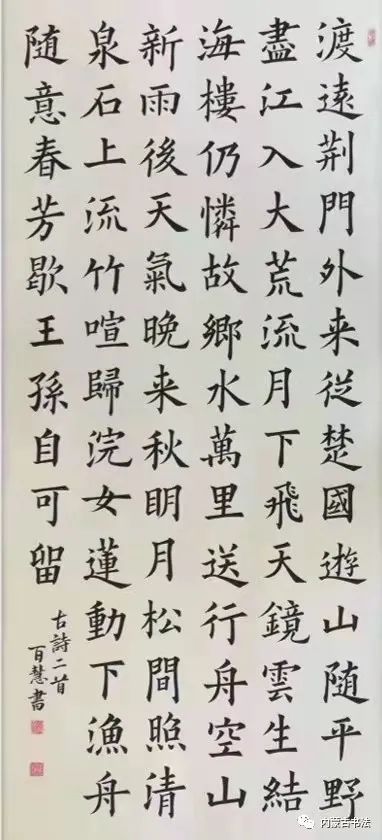 渡遠荆門外来從楚國遊山隨平野
盡江入大荒流月下飛天鏡雲生結
海樓仍憐故鄉水萬里送行舟空山
新雨後天氣晚来秋明月松間照清
泉石上流竹喧歸浣女蓮動下漁舟
随意春芳歇王孫自可留
古詩二首
百慧書
内蒙古书法